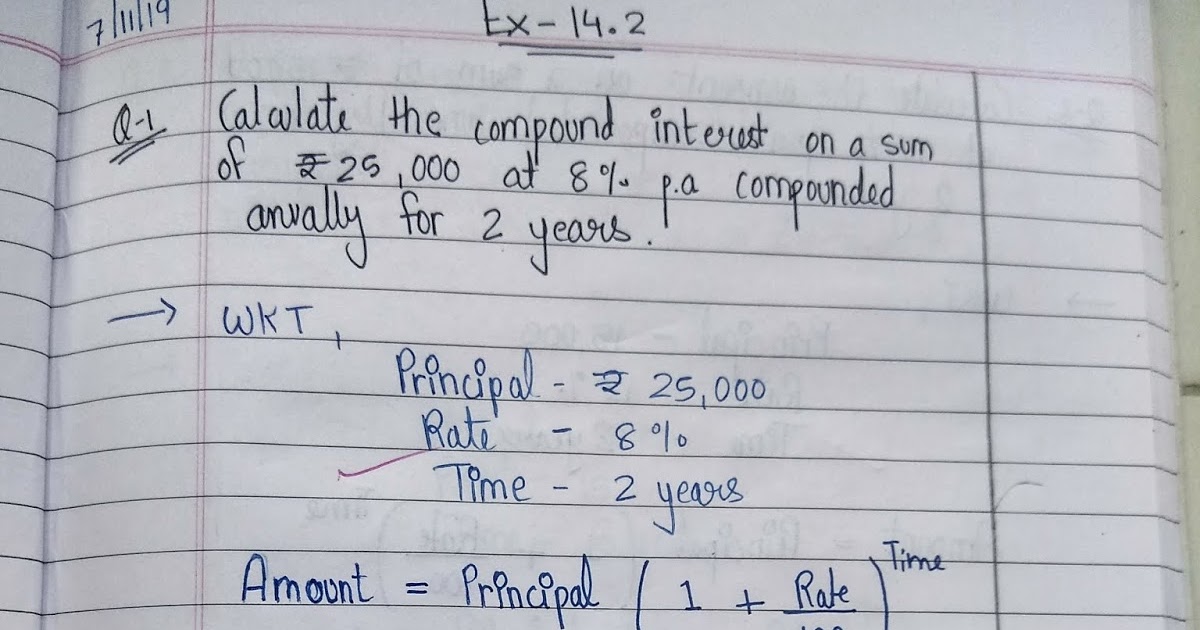 7/11/19
Ex - 14.2
Q-1 Calculate the compound interest on a sum
of ₹ 25,000 at 8% p.a compounded
anually for 2 years.
→ WKT,
Principal - ₹ 25,000
Rate - 8%
Time - 2 years
Amount = Principal ( 1 + Rate ) Time
100